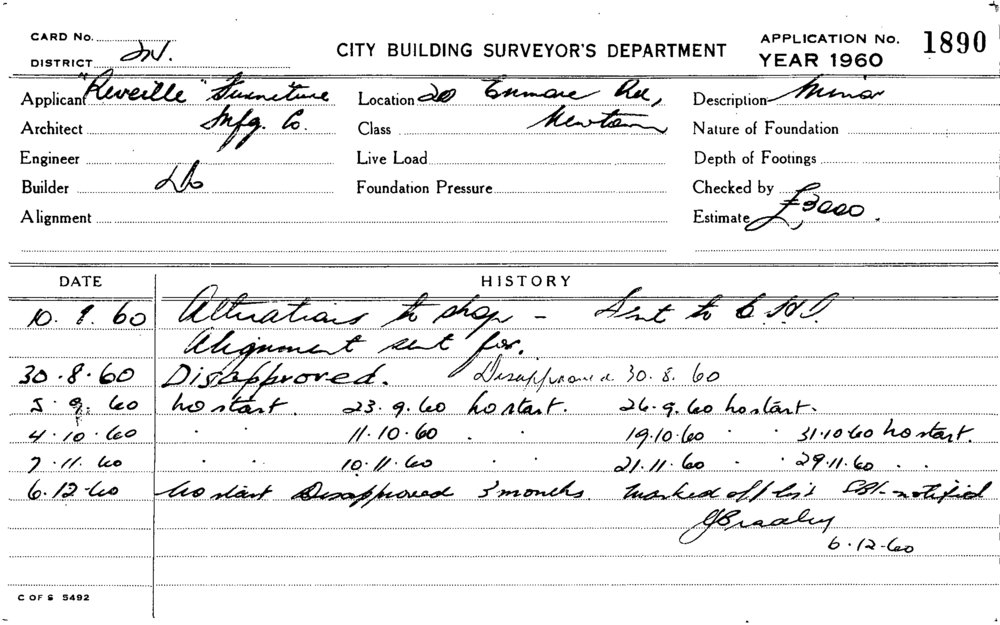 CARD No.
DISTRICT N.
CITY BUILDING SURVEYOR'S DEPARTMENT
APPLICATION No. 1890
YEAR 1960
Applicant "Reveille" Furniture
Mfg. Co.
Location 20 Enmore Rd,
Newtown
Description Minor
Architect
Class
Nature of Foundation
Engineer
Live Load
Depth of Footings
Builder Do
Foundation Pressure
Checked by
Alignment
Estimate £3000.
DATE HISTORY
10. 60 Alterations to shop - Sent to
Alignment sent for.
30.8.60 Disapproved. Disapproved 30.8.60
5.9.60 No start. 23.9.60 No start. 26.9.60 No start.
4.10.60 " " 11.10.60 " " 19.10.60 " " 31.10.60 No start.
7.11.60 " " 10.11.60 " " 21.11.60 " " 29.11.60 " "
6.12.60 No start Disapproved 3 months. Marked off list notified
Bradley
6.12.60
C OF S 5492